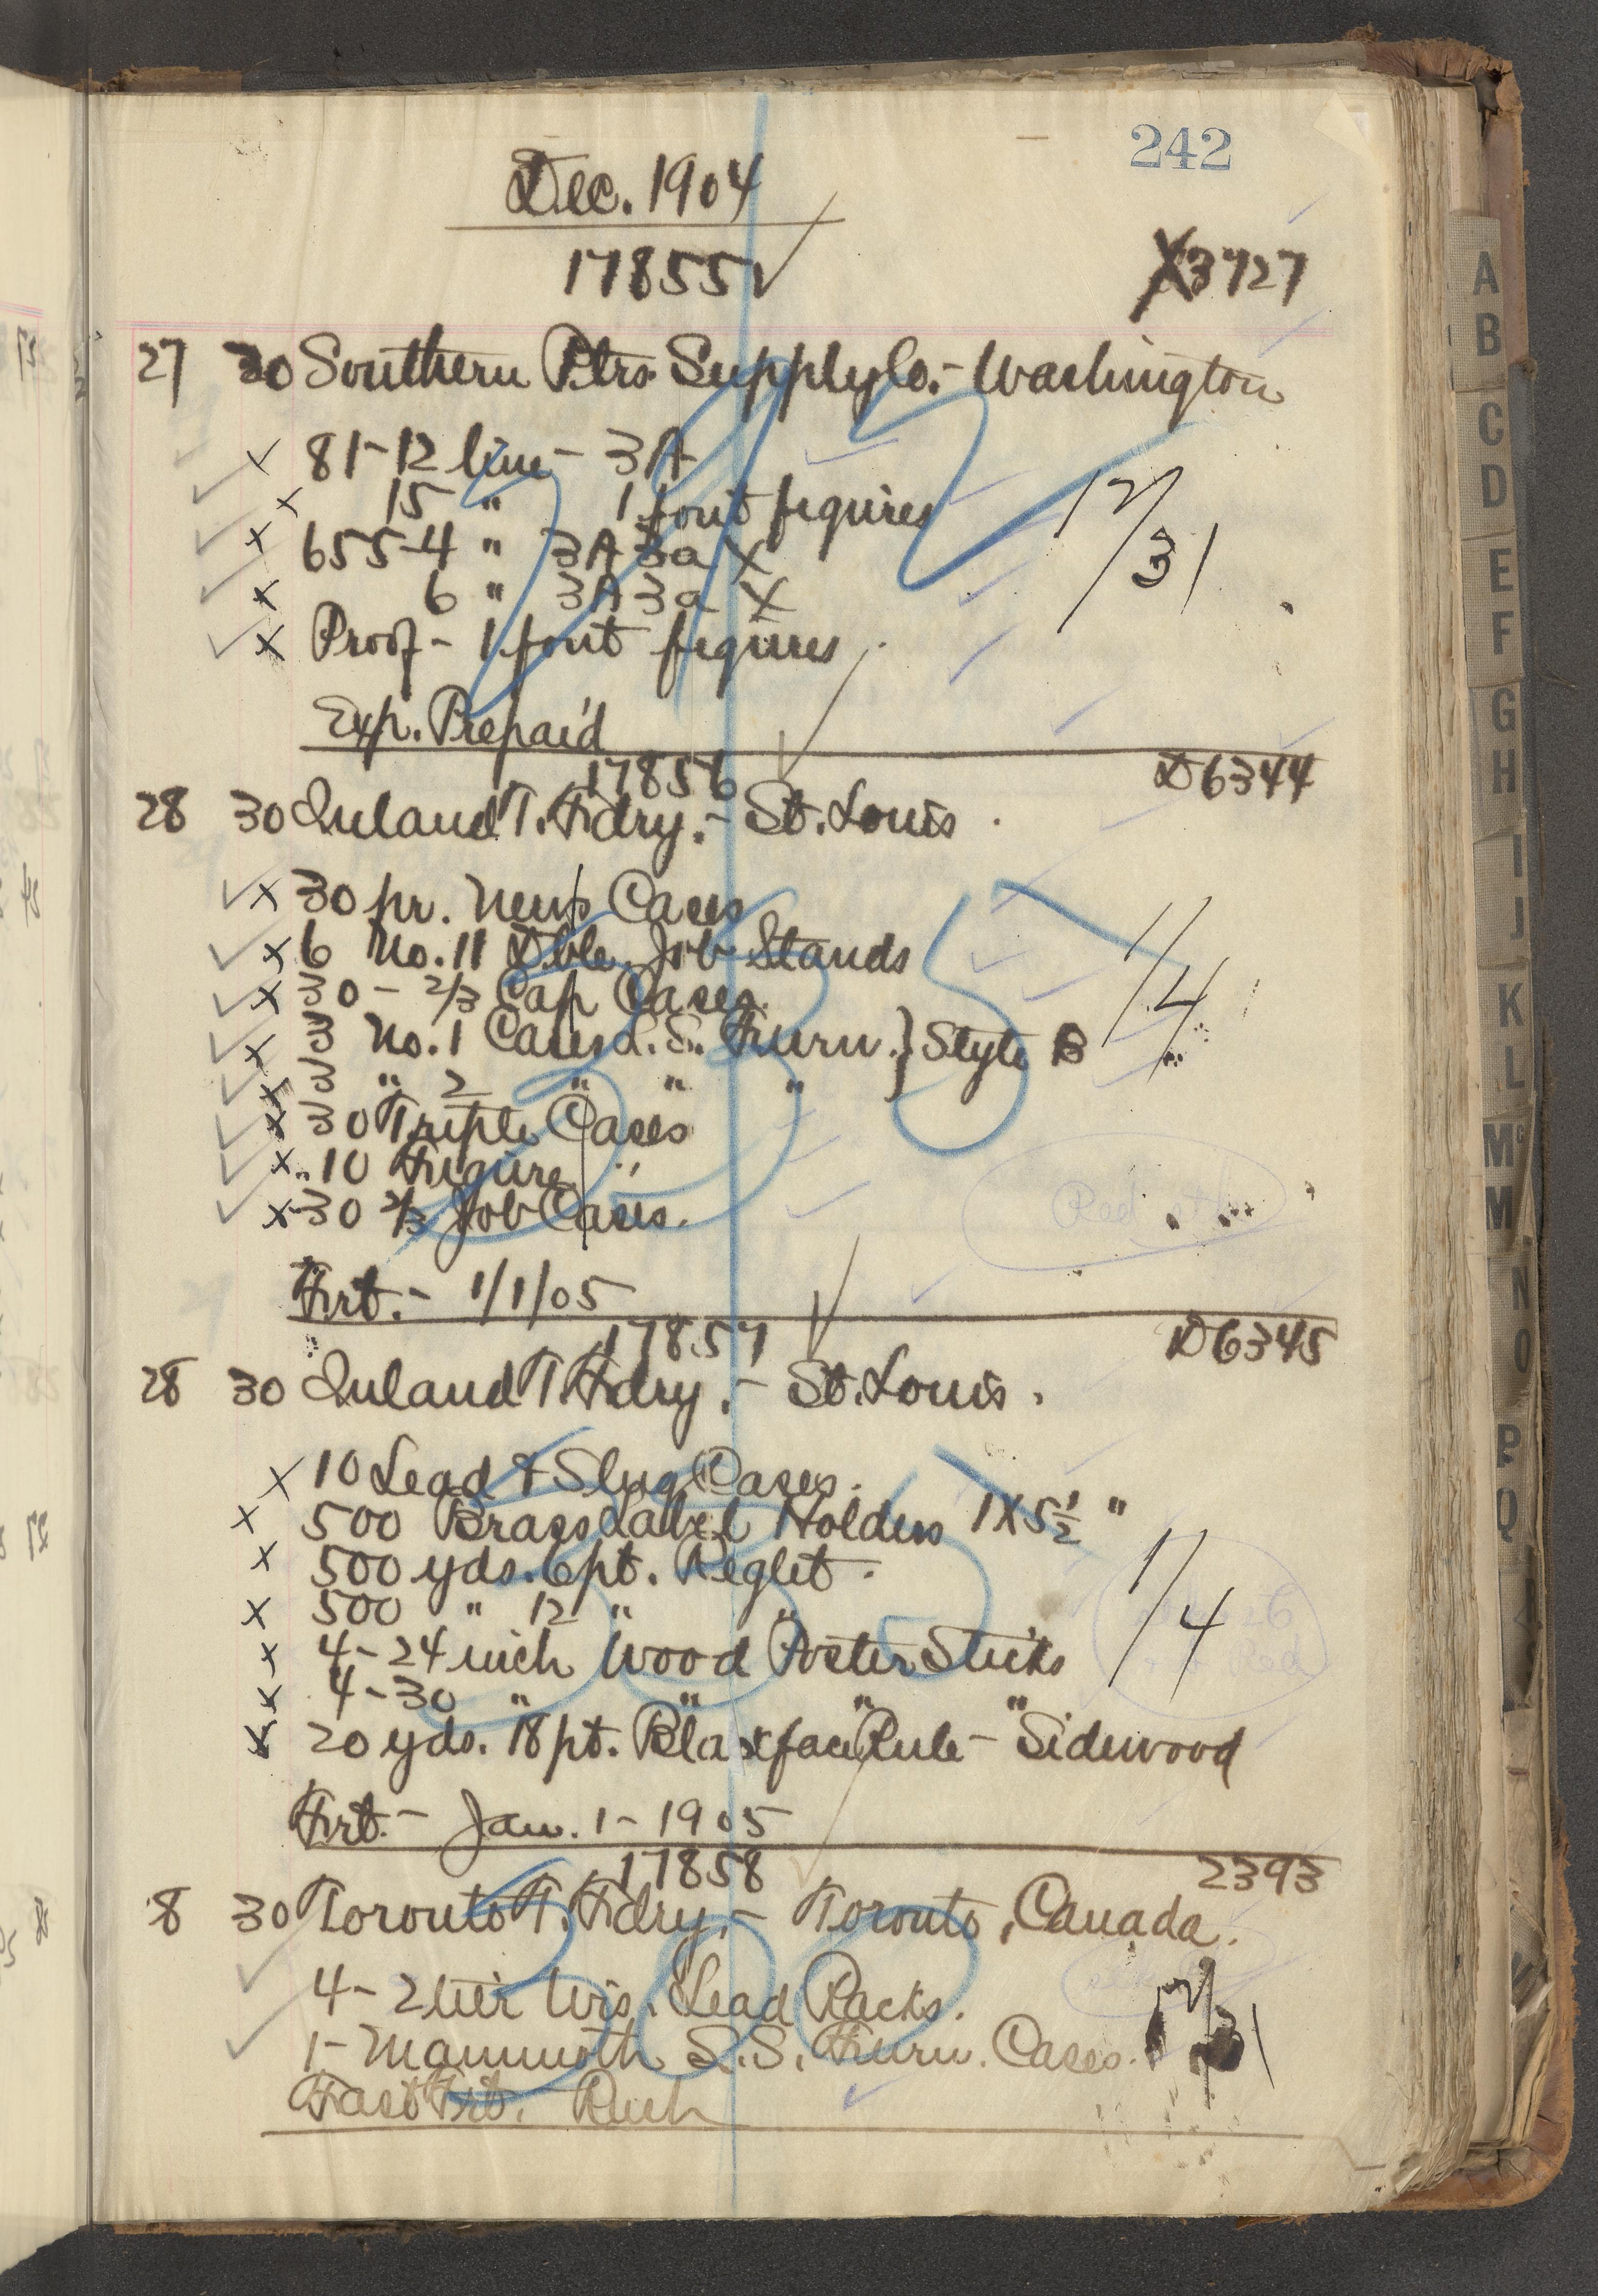 242
Dec. 1904
17855 X3727
27 30 Southern Ptrs. Supply Co. - Washington
x 81-12 line - 3A
x 15 " 1 font figures
x 655-4 " 3A 3a X
x 6 " 3A 3a X
x Proof - 1 font figures
12/31
Exp. Prepaid
17856 D6344
28 30 Inland T. Fdry. - St. Louis.
x 30 pr. News Cases
x 6 No. 11 Dble. Job Stands
x 30 - 2/3 Cap Cases.
x No. 1 Cases L.S. Furn. } Style B
x " 2 " " "
x 30 Triple Cases
x 10 Figure "
x 30 2/3 Job Cases.
1/4
Red
Frt. - 1/1/05
17857 D6345
28 30 Inland T. Fdry. - St. Louis.
x 10 Lead & Slug Cases.
x 500 Brass Label Holders 1X5½"
x 500 yds. 6pt. Reglet.
x 500 " 12 " "
x 4-24 inch Wood Poster Sticks
x 4-30 " " " "
x 20 yds. 18pt. Blackface Rule - Sidewood
1/4
Frt. - Jan. 1 - 1905
17858 2393
8 30 Toronto T. Fdry. - Toronto, Canada.
4 - 2 tier Wis. Lead Racks.
1 - Mammoth L.S. Furn. Cases.
12/31
Fast Frt. Rush
A
B
C
D
E
F
G
H
I
J
K
L
Mc
M
N
O
P
Q